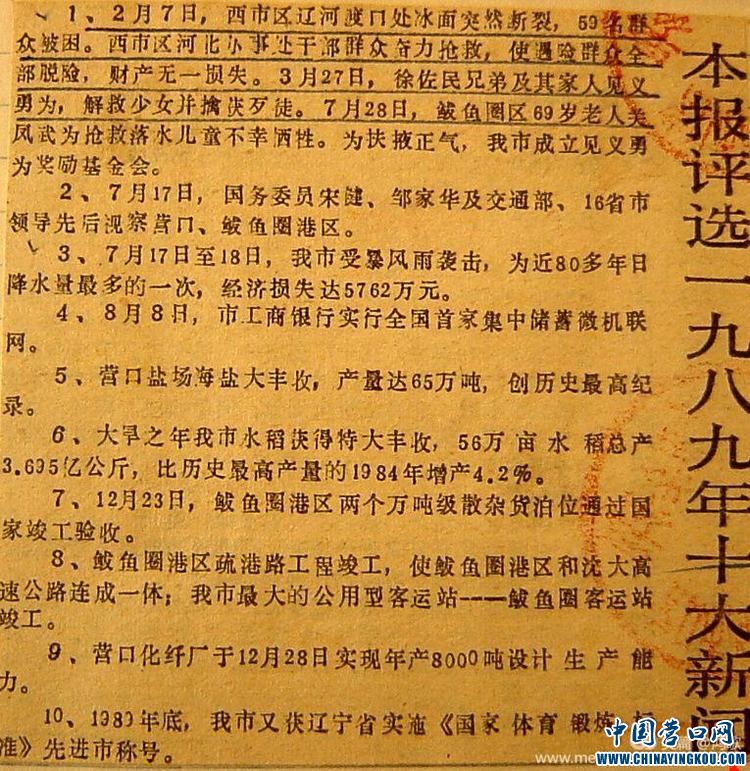 本报评选一九八九年十大新闻
1、2月7日，西市区辽河渡口处冰面突然断裂，59名群
众被困。西市区河北办事处干部群众奋力抢救，使遇险群众全
部脱险，财产无一损失。3月27日，徐佐民兄弟及其家人见义
勇为，解救少女并擒获歹徒。7月28日，鲅鱼圈区69岁老人关
凤武为抢救落水儿童不幸牺牲。为扶掖正气，我市成立见义勇
为奖励基金会。
2、7月17日，国务委员宋健、邹家华及交通部、16省市
领导先后视察营口、鲅鱼圈港区。
3、7月17日至18日，我市受暴风雨袭击，为近80多年日
降水量最多的一次，经济损失达5762万元。
4、8月8日，市工商银行实行全国首家集中储蓄微机联
网。
5、营口盐场海盐大丰收，产量达65万吨，创历史最高纪
录。
6、大旱之年我市水稻获得特大丰收，56万亩水稻总产
3.695亿公斤，比历史最高产量的1984年增产4.2%。
7、12月23日，鲅鱼圈港区两个万吨级散杂货泊位通过国
家竣工验收。
8、鲅鱼圈港区疏港路工程竣工，使鲅鱼圈港区和沈大高
速公路连成一体；我市最大的公用型客运站——鲅鱼圈客运站
竣工。
9、营口化纤厂于12月28日实现年产8000吨设计生产能
力。
10、1989年底，我市又获辽宁省实施《国家体育锻炼标
准》先进市称号。
中国营口网
www.CHINAYINGKOU.com